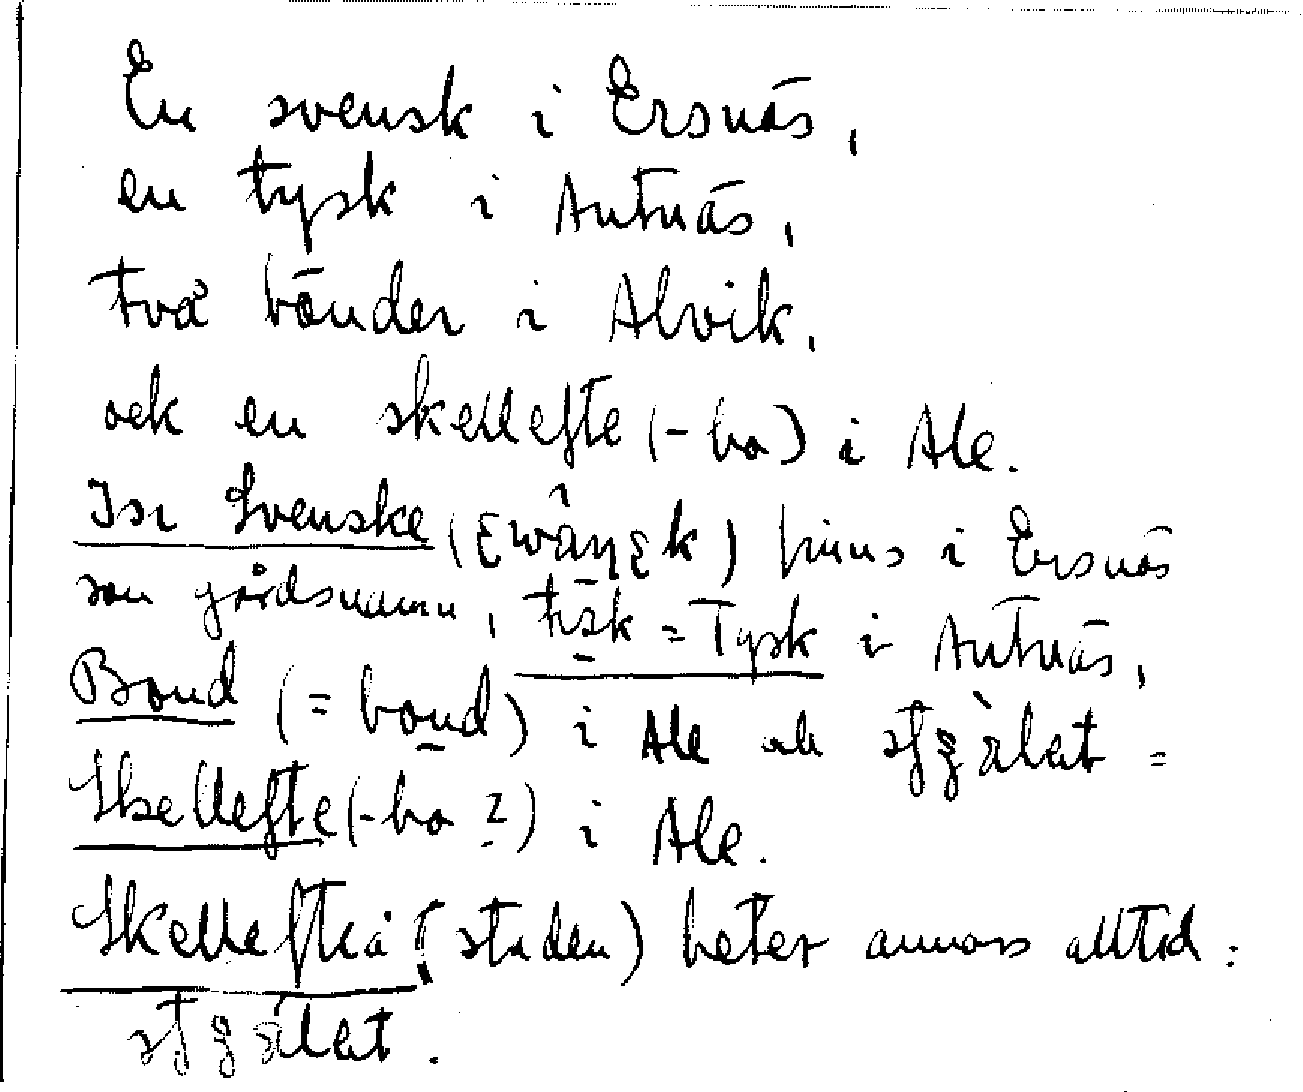 En svensk i Ersnäs,
en tysk i Antnäs,
två bönder i Alvik,
ock en skellefte (-bo) i Ale.
Svenske finns i Ersnäs
som gårdsnamn, = Tysk i Antnäs,
Bond (= bond) i Ale ock =
Skellefte (-bo ?) i Ale.
Skellefteå (staden) heter annars alltid: